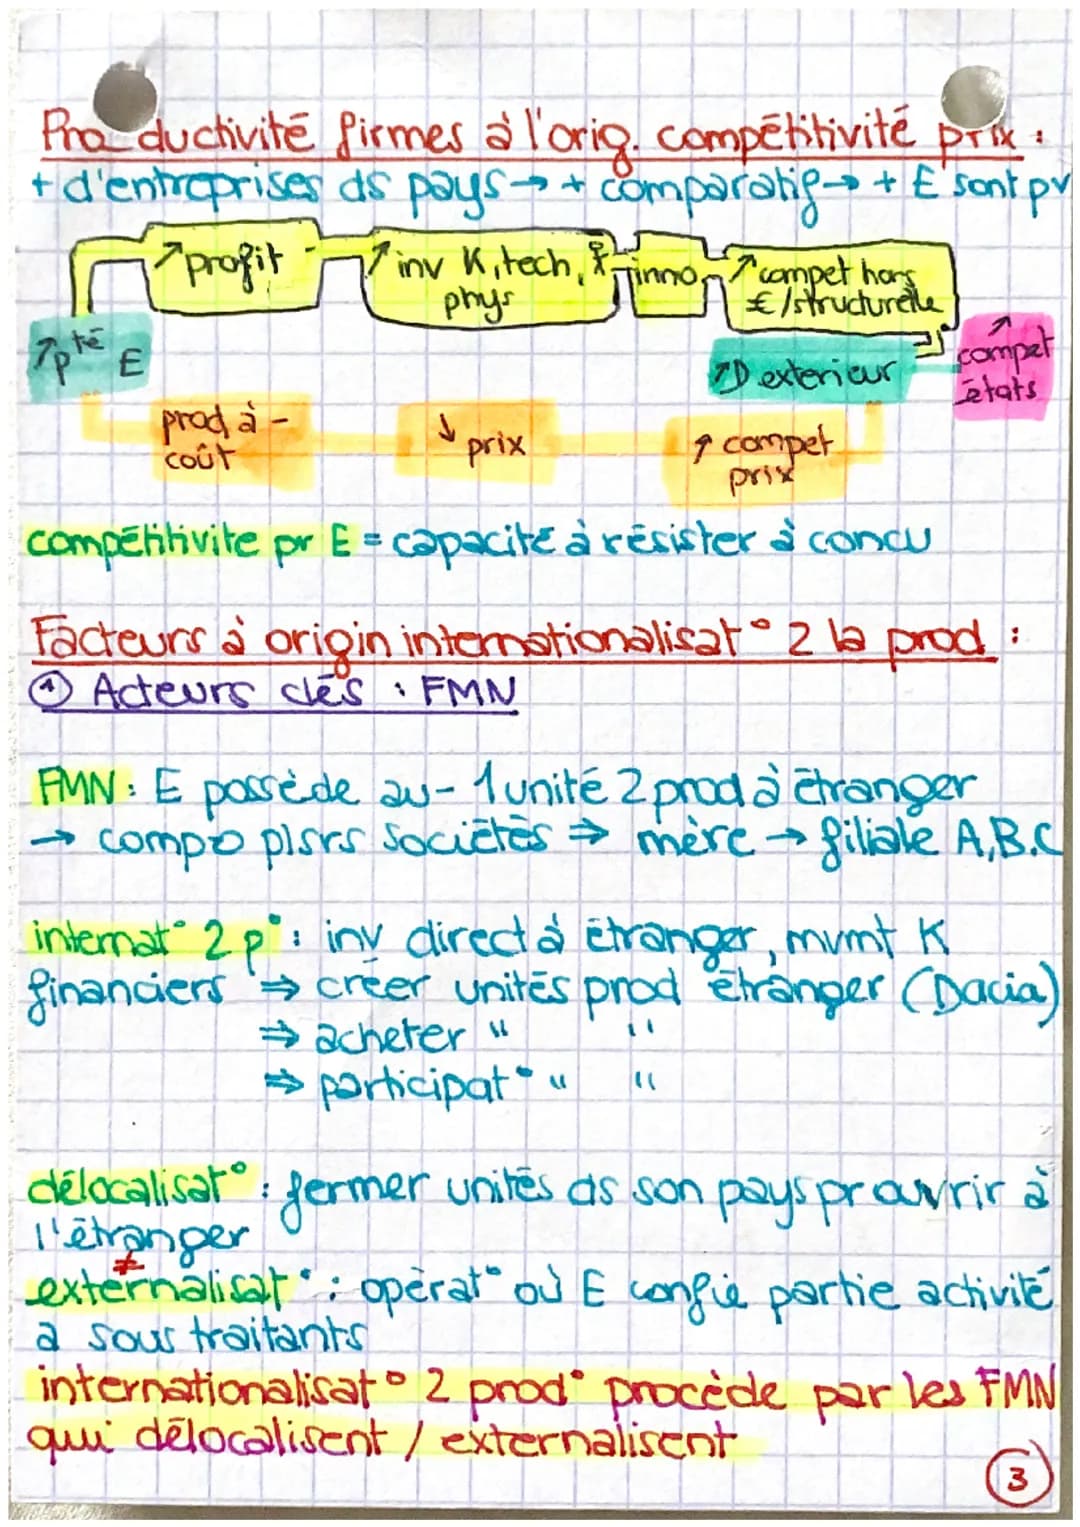 Productivité firmes à l'orig. compétitivité prix :
+ d'entreprises ds pays → + comparatif → + E sont pv
↗ profit
↗ inv K, tech, phys
inno
↗ compet hors € / structurelle
↗ pté E
↗ D exterieur
↗ compet états
prod à - coût
↓ prix
↗ compet prix
compétitivite pr E = capacité à résister à concu
Facteurs à origin internationalisat° 2 la prod :
① Acteurs clés : FMN
FMN : E possède au - 1 unité 2 prod à étranger
→ compo plsrs sociétés ⇒ mère → filiale A, B, C
internat° 2 p° : inv direct à étranger, mvmt K
financiers ⇒ créer unités prod étranger (Dacia)
⇒ acheter " "
⇒ participat° " "
délocalisat° : fermer unités ds son pays pr ouvrir à
l'étranger
≠
externalisat° : opérat° où E confie partie activité
a sous traitants
internationalisat° 2 prod° procède par les FMN
qui délocalisent / externalisent
3